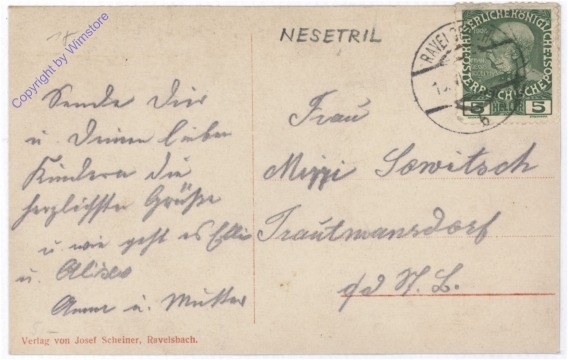 NESETRIL
Copyright by Wimstore
RAVELS
KAISERLICHE KÖNIGLICHE
5 HELLER 5
Sende Dir
u. Deinen lieben
Kindern die
herzlichsten Grüße
u wie geht es Elli
u.
Anna u. Mutter
Frau
Mizzi Sowitsch
Trautmansdorf
N. Ö.
Verlag von Josef Scheiner, Ravelsbach.